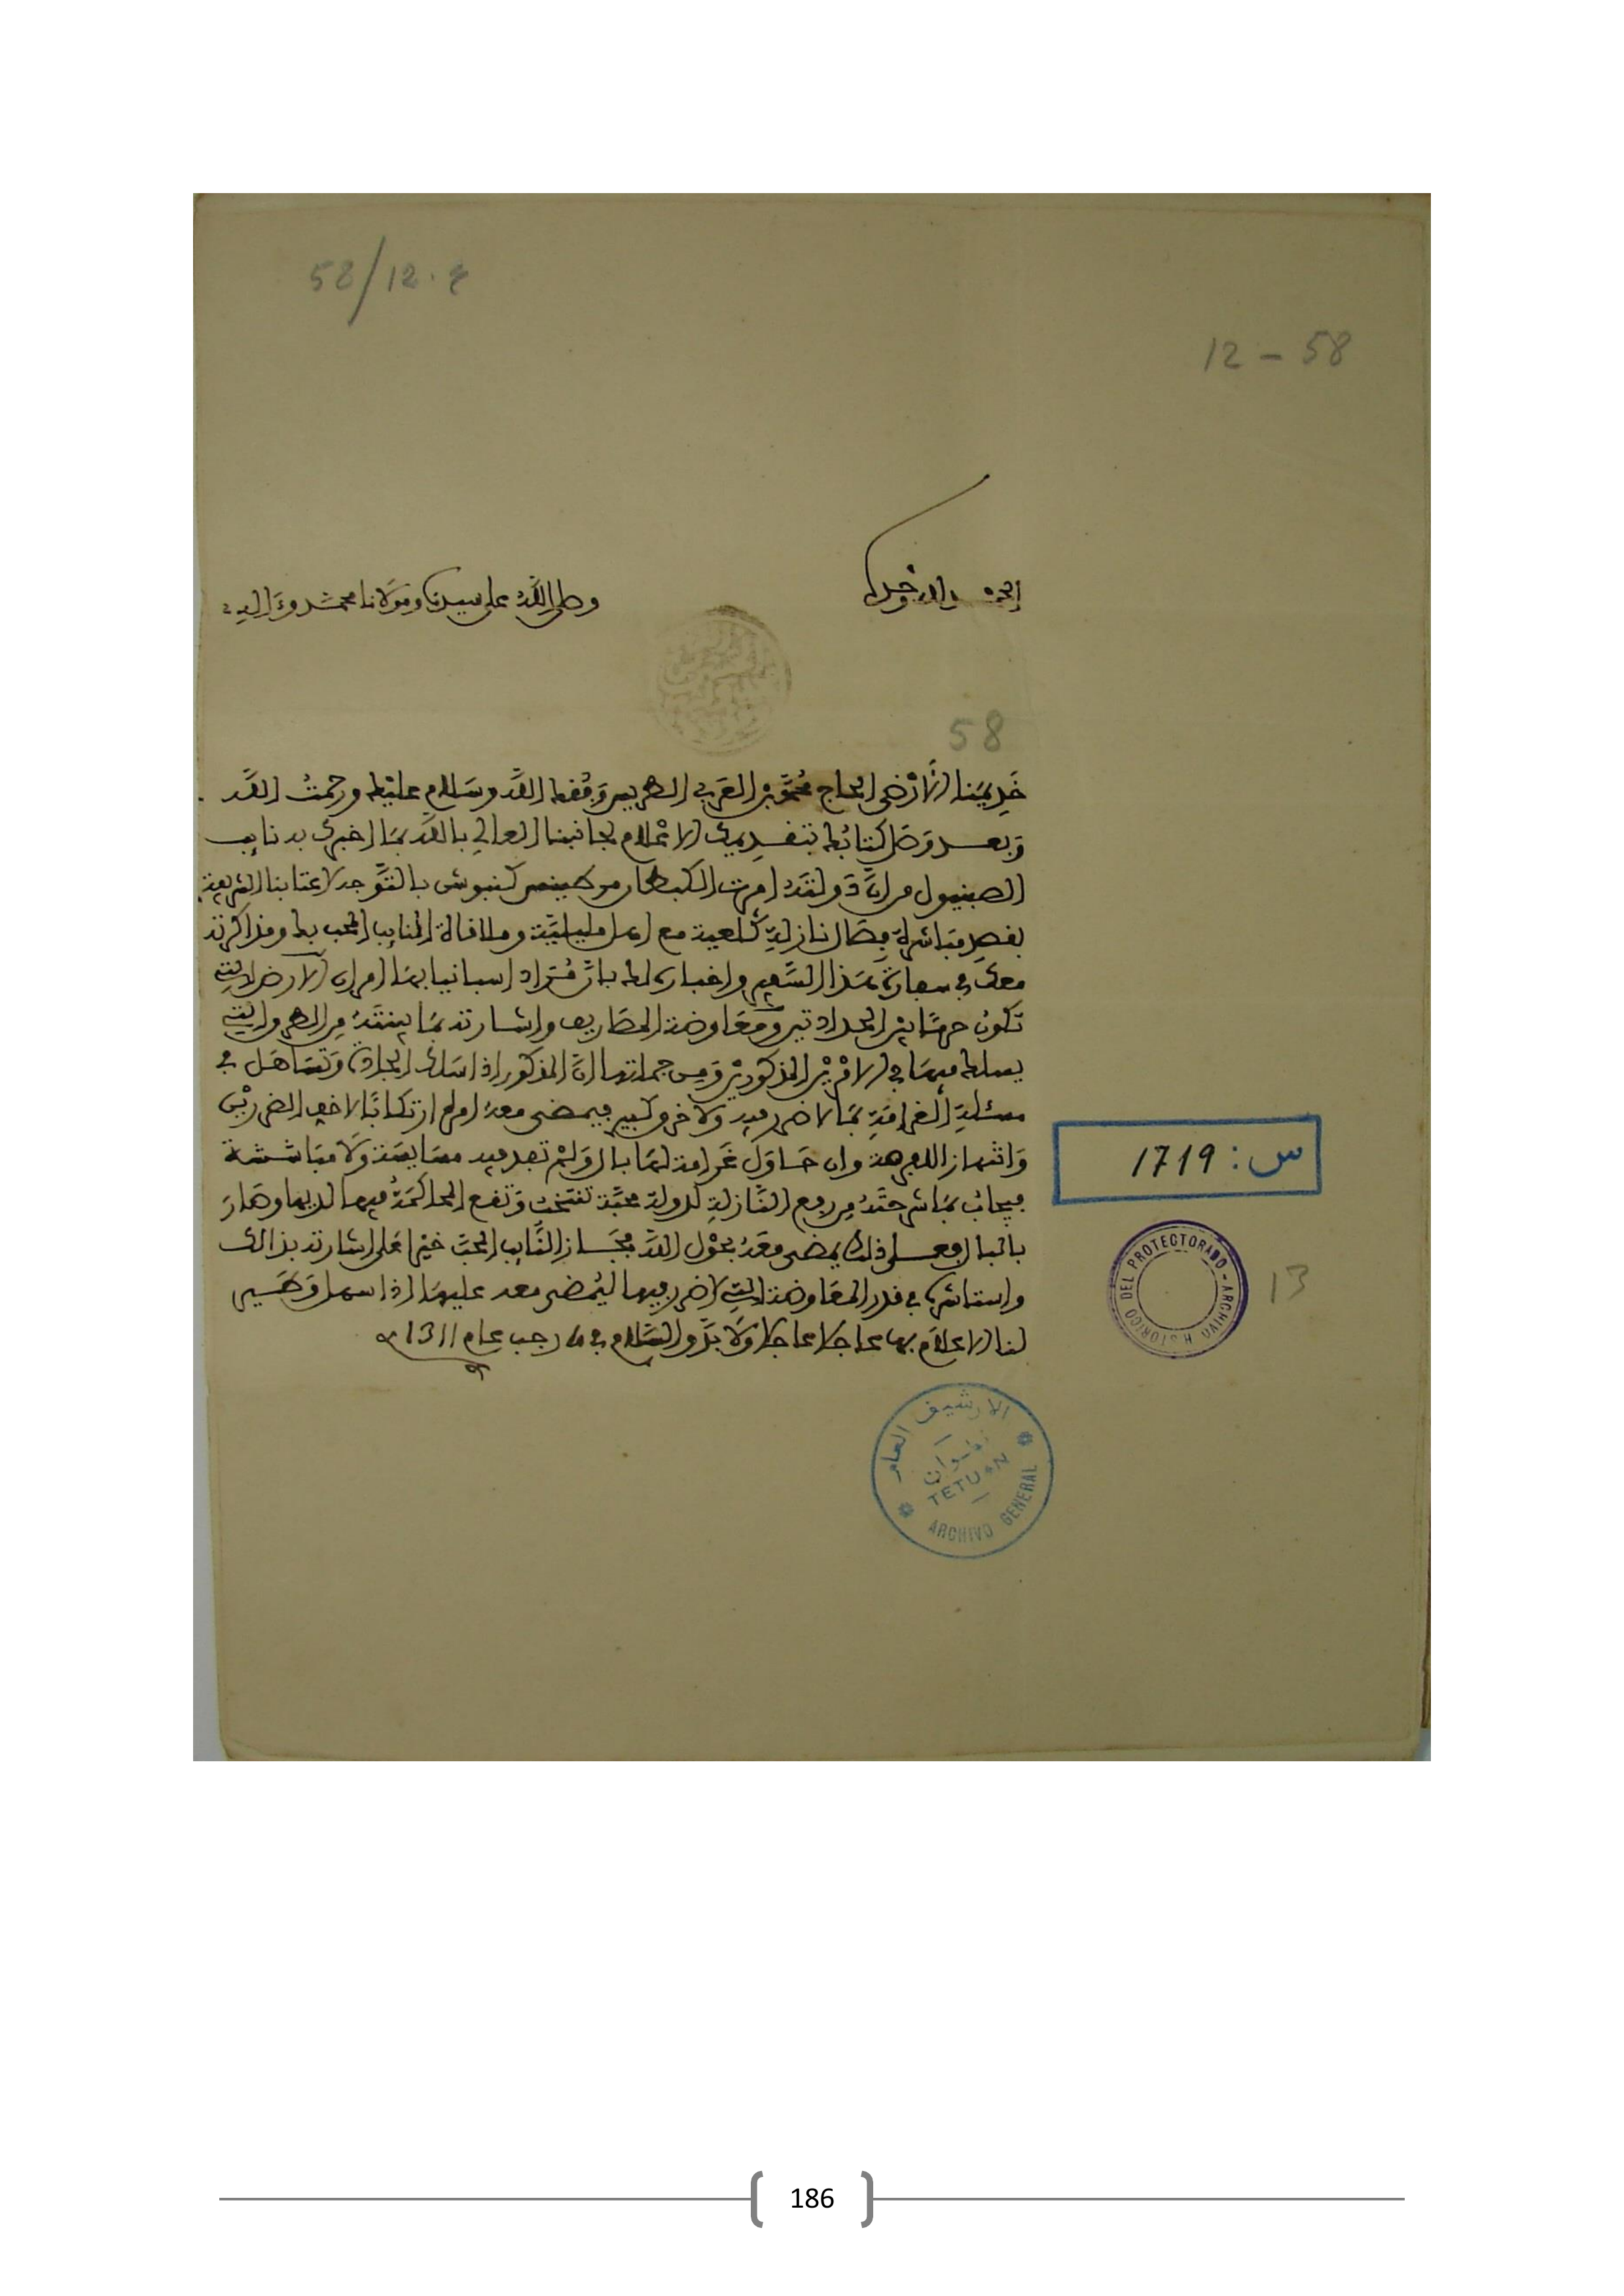 58/12.
12 – 58
الحمد لله وحده
وصلى الله على سيدنا ومولانا محمد وءاله
58
خديمنا الأرضى الحاج محمد بن العربي الطريس وفقك الله وسلام عليك ورحمت الله
وبعد وصل كتابك بتقديمك الاعلام لجانبنا العالي بالله بما اخبرك به نايب
الصبنيول من ان دولته امرت الكبطان مرطينيس كنبوس بالتوجه لاعتابنا الشريفة
بقصد مباشرة فصال نازلة كلعية مع اهل مليلية وملاقاة النايب المحب بك ومذاكرته
معك في سفارته هذا السفير واخباره لك بان مراد اسبانيا بها امران الارض التي
تكون حرما بين الحدادتين ومعاوضة المصاريف واشارته بما ينتقد من الطرو التي
يسلك فيها في الامرين المذكورين ومن جملتها ان المذكور اذا سلك الجادة وتساهل في
مسئلة الغرامة بما لا ضرر فيه ولا خرو كبير فيمضى معه امرها ارتكابا لاخف الضررين
وانتهاز اللفرصة وان حاول غرامة لها بال ولم تجد فيه مسايسة ولا مباششة
فيجاب بما شرحته من رفع النازلة لدولة محبة تنتخب وتقع المحاكمة فيها لديها وصار
بالبال فعلى ذلك يمضى معه بحول الله فجاز النايب المحب خيرا على اشارته بذالك
واستاشره في قدر المعاوضة التي لا ضرر فيها ليمضى معه عليها اذا سهل وطير
لنا الاعلام بها عاجلا عاجلا ولا بد والسلام في رجب عام 1311
س: 1719
ARCHIVO HISTORICO DEL PROTECTORADO
13
الارشيف العام
تطوان
TETUAN
ARCHIVO GENERAL
186